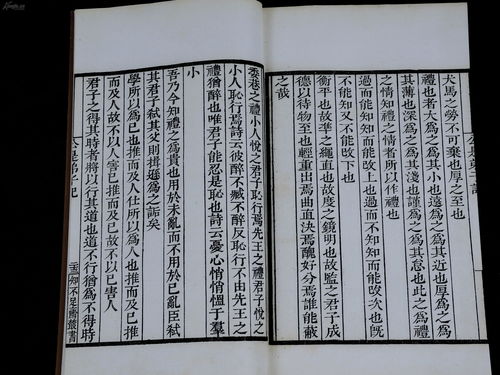 犬馬之勞不可棄也厚之至也
禮也者大爲之爲其小也遠爲之爲其近也厚爲之爲
其薄也深爲之爲其淺也謹爲之爲其怠也此之爲禮
之情知禮之情者所以作禮也
過而能知又能改上也過而不知知而能改次也既
不能知又不能改下也
衡平也故準之繩直也故度之鏡明也故監之君子成
德以待物至也輕重出焉曲直決焉醜好分焉誰能蔽
之哉
公是弟子記
委巷之禮小人恱之君子恥行焉先王之禮君子恱之
小人恥行焉詩云彼醉不臧不醉反恥行不由先王之
禮猶醉也唯君子能忍是恥也詩云憂心悄悄愠于羣
小
吾乃今知禮之爲貴也用於未亂而不用於已亂臣弑
其君子弑其父則揖遜爲之詬矣
學所以爲已也推而及人仕所以爲人也推而及已推
而及人故不以人害已推而及已故不以已害人
君子之得其時者將以行其道也道不行猶爲不得時
公是弟子記
知不足齋叢書